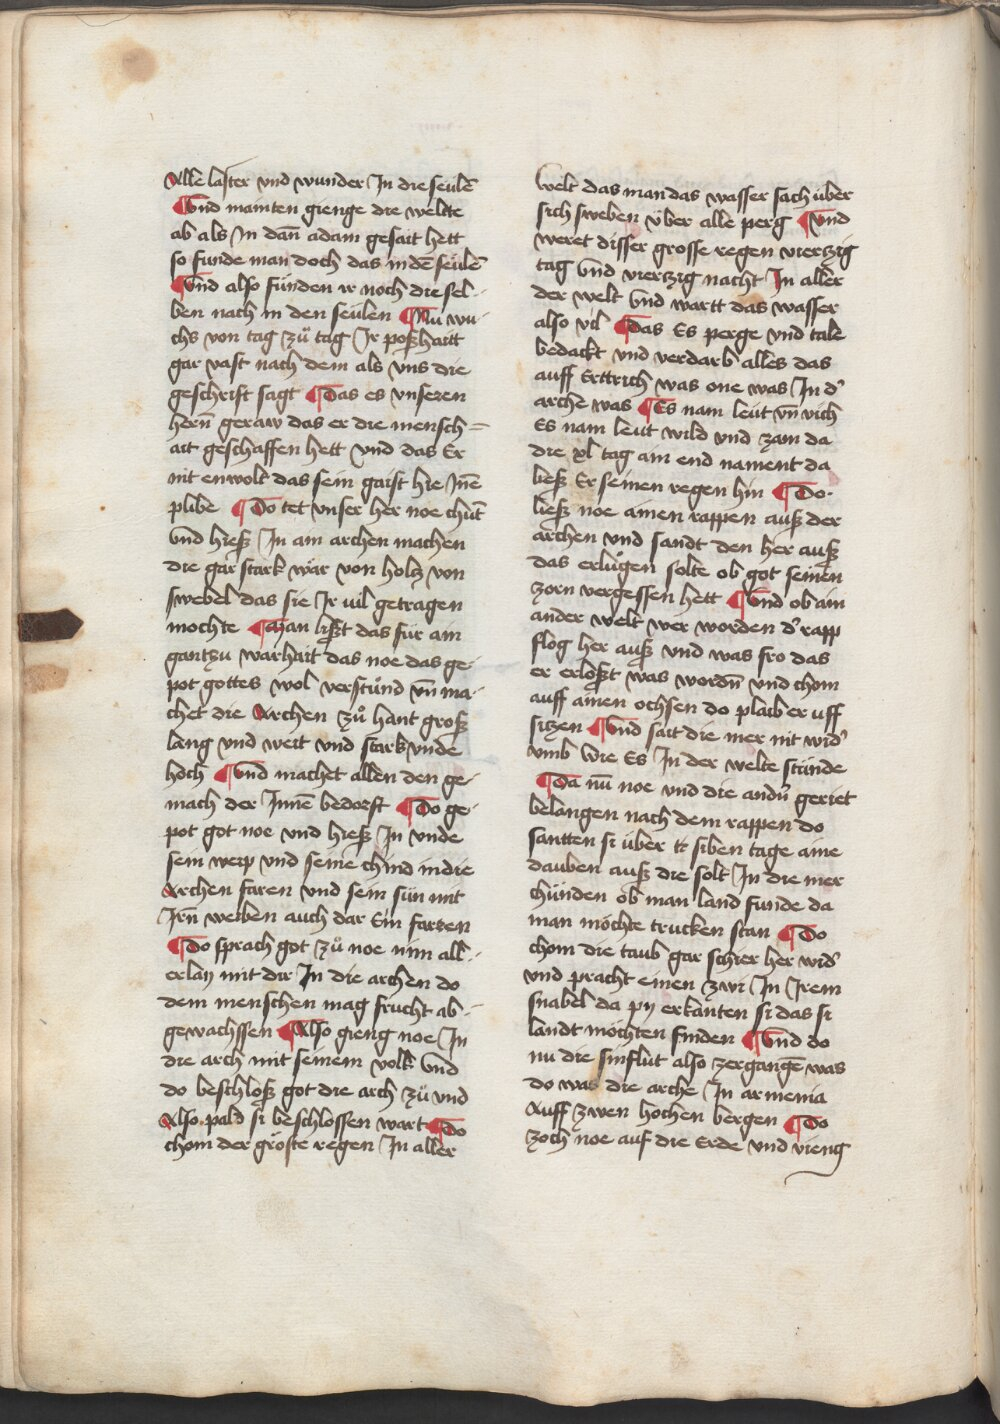 Alle laster vnd wunder In die seulē
¶ Vnd mainten gienge die weltte
ab als In dañ adam gesait hett
so funde man doch das in dē seulē
¶ Vnd also fŭnden ir noch diesel-
ben nach in den seulen ¶ Nu wu-
chs von tag zů tag Ir poßhaitt
gar vast nach dem als vns die
geschrift sagt ¶ Das es vnseren
herñ geraw das er die mensch=
ait geschaffen hett vnd das Er
nit enwolt das sein gaist hie Inē
plibe ¶ Do tet vnser her noe chūt
vnd hieß In ain archen machen
die gar stark wär von holtz von
swebel das sie Ir vil getragen
mochte ¶ Man lißt das für ain
gantzu warhait das noe das ge-
pot gottes wol verstůnd vñ ma-
chet die Archen zů hant groß
lang vnd weit vnd stark vnde
hoch ¶ Vnd machet allen den ge-
mach der Innē bedorft ¶ Do ge-
pot got noe vnd hieß In vnde
sein weip vnd seine chind in die
Archen faren vnd sein sün mit
Irñ weiben auch dar Ein farten
¶ Do sprach got zů noe nim all-
erlay mit dir In die archen do
dem menschen mag frucht ab-
gewachssen ¶ Also gieng noe In
die arch mit seinem volk vnd
do beschloß got die arch zů vnd
Also pald si beschlossen wart ¶ Do
chom der gröste regen In aller
welt das man das wasser sach über
sich sweben über alle perg ¶ Vnd
weret disser grosse regen viertzig
tag vnd viertzig nacht In aller
der welt vnd wartt das wasser
also vil ¶ Das Es perge vnd tale
bedackt vnd verdarb alles das
auff Erttrich was one was In d'
arche was ¶ Es nam leut vñ vich
Es nam leut wild vnd zam da
die xl tag ain end nament da
ließ Er seinen regen hin ¶ Do
ließ noe ainen rappen auß der
archen vnd sandt den her auß
das erlůgen solte ob got seinen
zorn vergessen hett ¶ Vnd ob ain
ander welt wer worden d' rapp
flog her auß vnd was fro das
er erloßt was wordñ vnd chom
auff ainen ochsen do plaib er uff
sitzen ¶ Vnd sait die mer nit wid'
vmb wie Es In der welte stünde
¶ Da nū noe vnd die andñ geriet
belangen nach dem rappen do
santten si über siben tage aine
dauben auß die solt In die mer
chünden ob man land funde da
man möchte trucken stan ¶ Do
chom die taub gar schier her wid'
vnd pracht einen zwi In Irem
snabel da py erkanten si das si
landt möchten finden ¶ Vnd do
nu die sinflut also zergangē was
do was die arche In armenia
Auff zwen hochen bergen ¶ Do
zoch noe auf die Erde vnd vieng